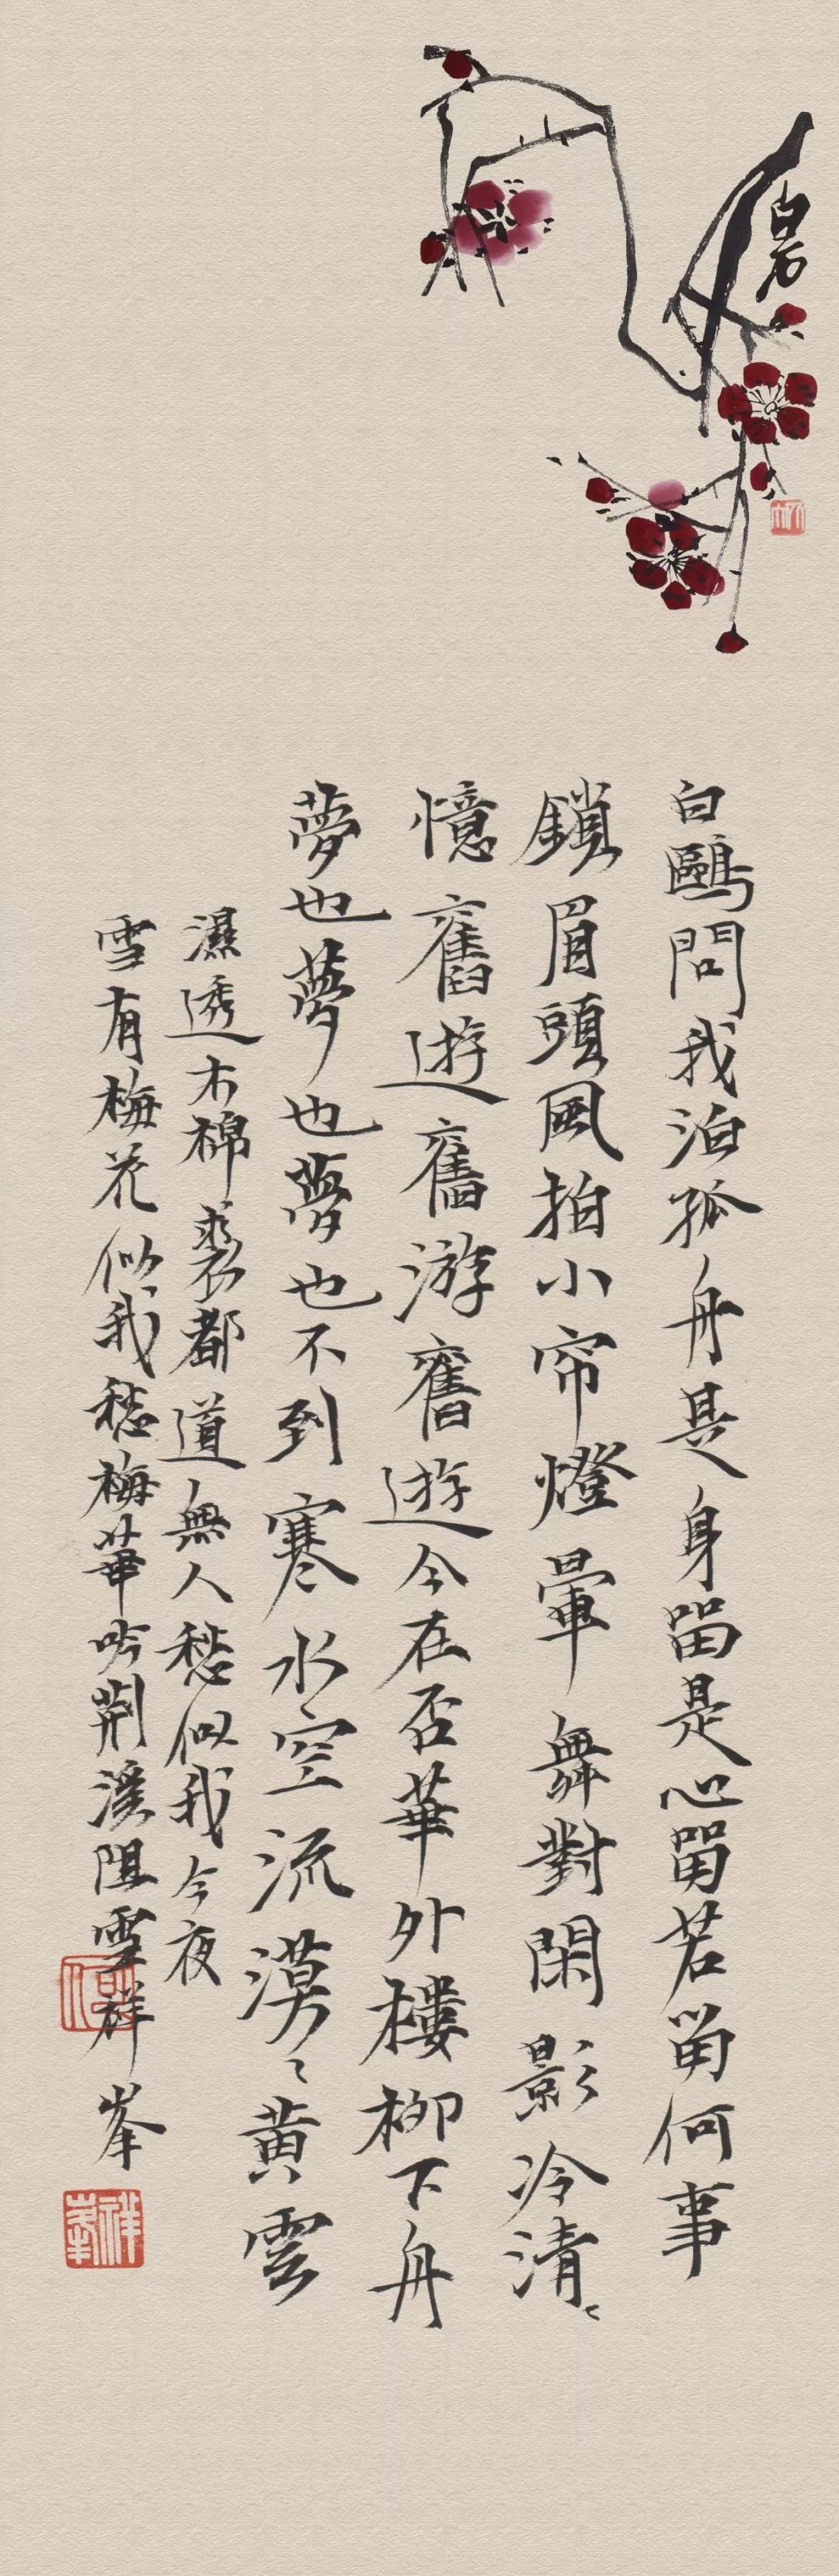 白石
白鷗問我泊孤舟是身留是心留若留何事
鎖眉頭風拍小帘燈暈舞對閑影冷清〻
憶舊遊舊游舊遊今在否華外樓柳下舟
夢也夢也夢也不到寒水空流漠〻黄雲
濕透木棉裘都道無人愁似我今夜
雪有梅花似我愁梅華吟荆溪阻雪祥峯
祥峯